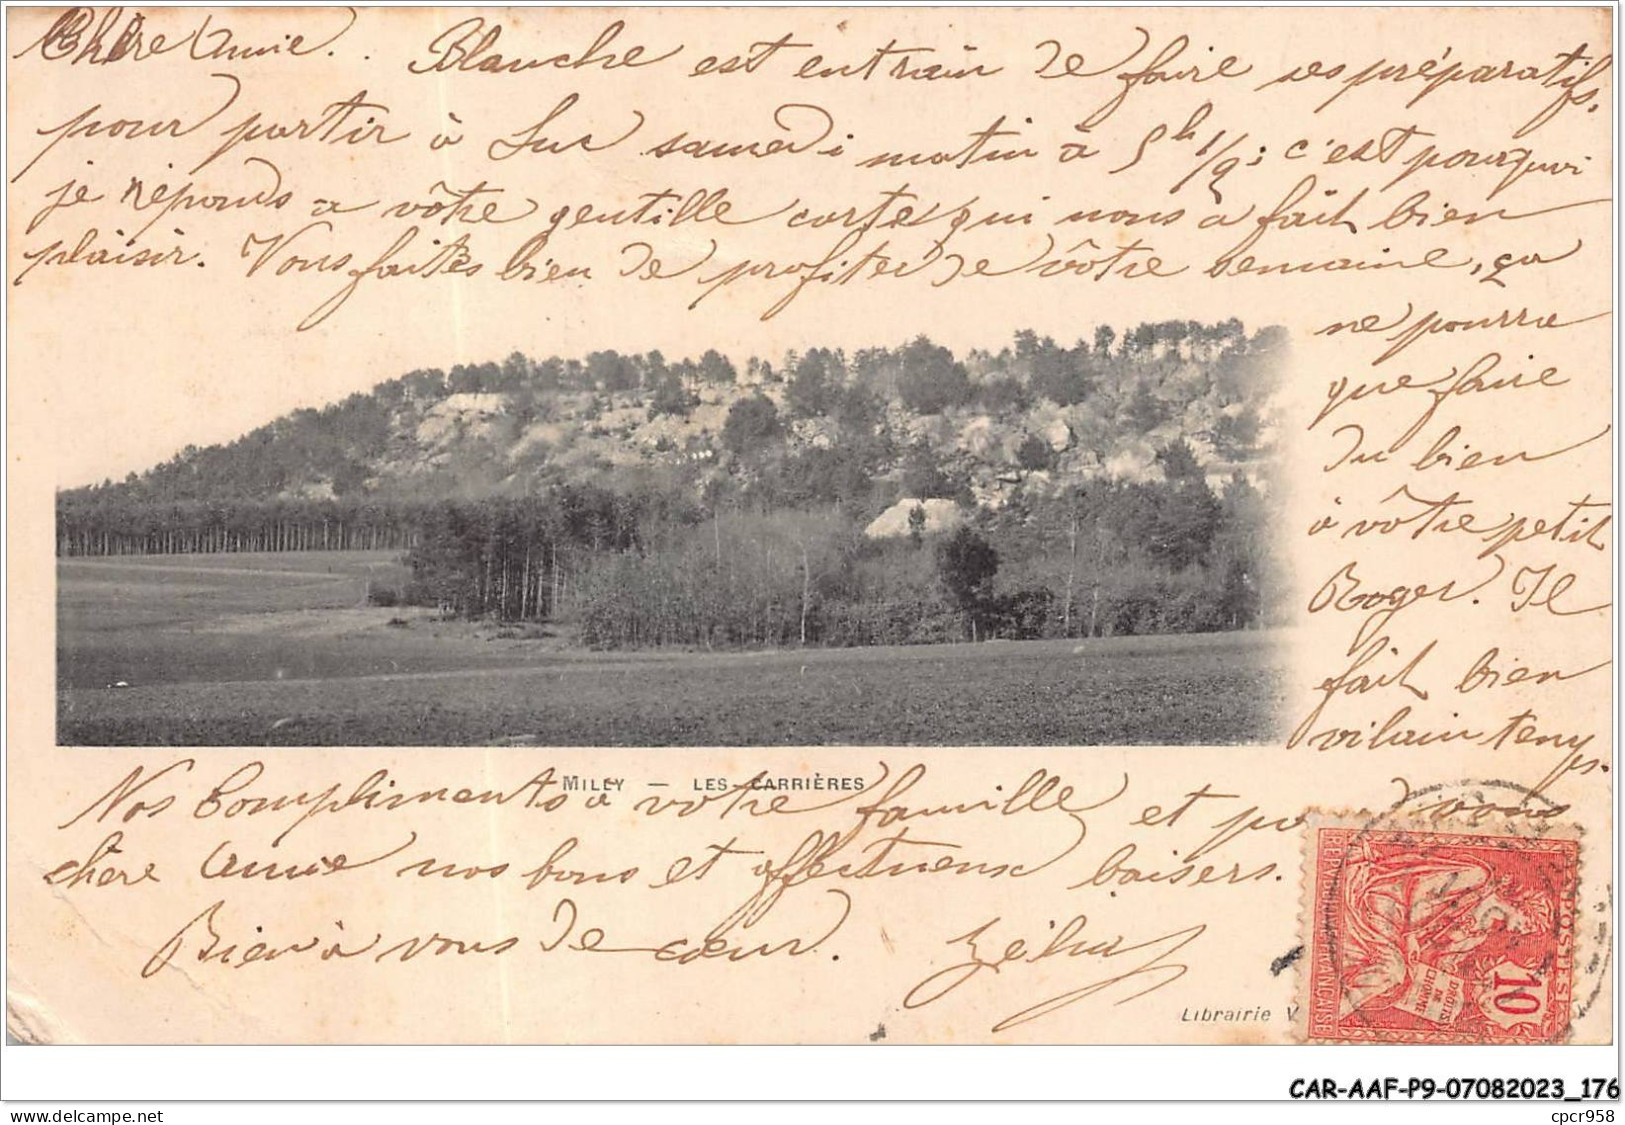 Chère Amie. Blanche est en train de faire ses préparatifs,
pour partir à Luc samedi matin à 5h 1/2; c'est pourquoi
je réponds a vôtre gentille carte qui nous à fait bien
plaisir. Vous faites bien de profiter de vôtre semaine, ça
ne pourra
que faire
du bien
à vôtre petit
Roger. Il
fait bien
vilain temps.
MILLY — LES CARRIÈRES
Nos Compliments à votre famille et pour vous
chère Amie nos bons et affectueux baisers.
Bien à vous de cœur. Zélia
Librairie V
REPUBLIQUE FRANÇAISE
POSTES
10
DROITS DE L'HOMME
CAR-AAF-P9-07082023_176
www.delcampe.net
cpcr958